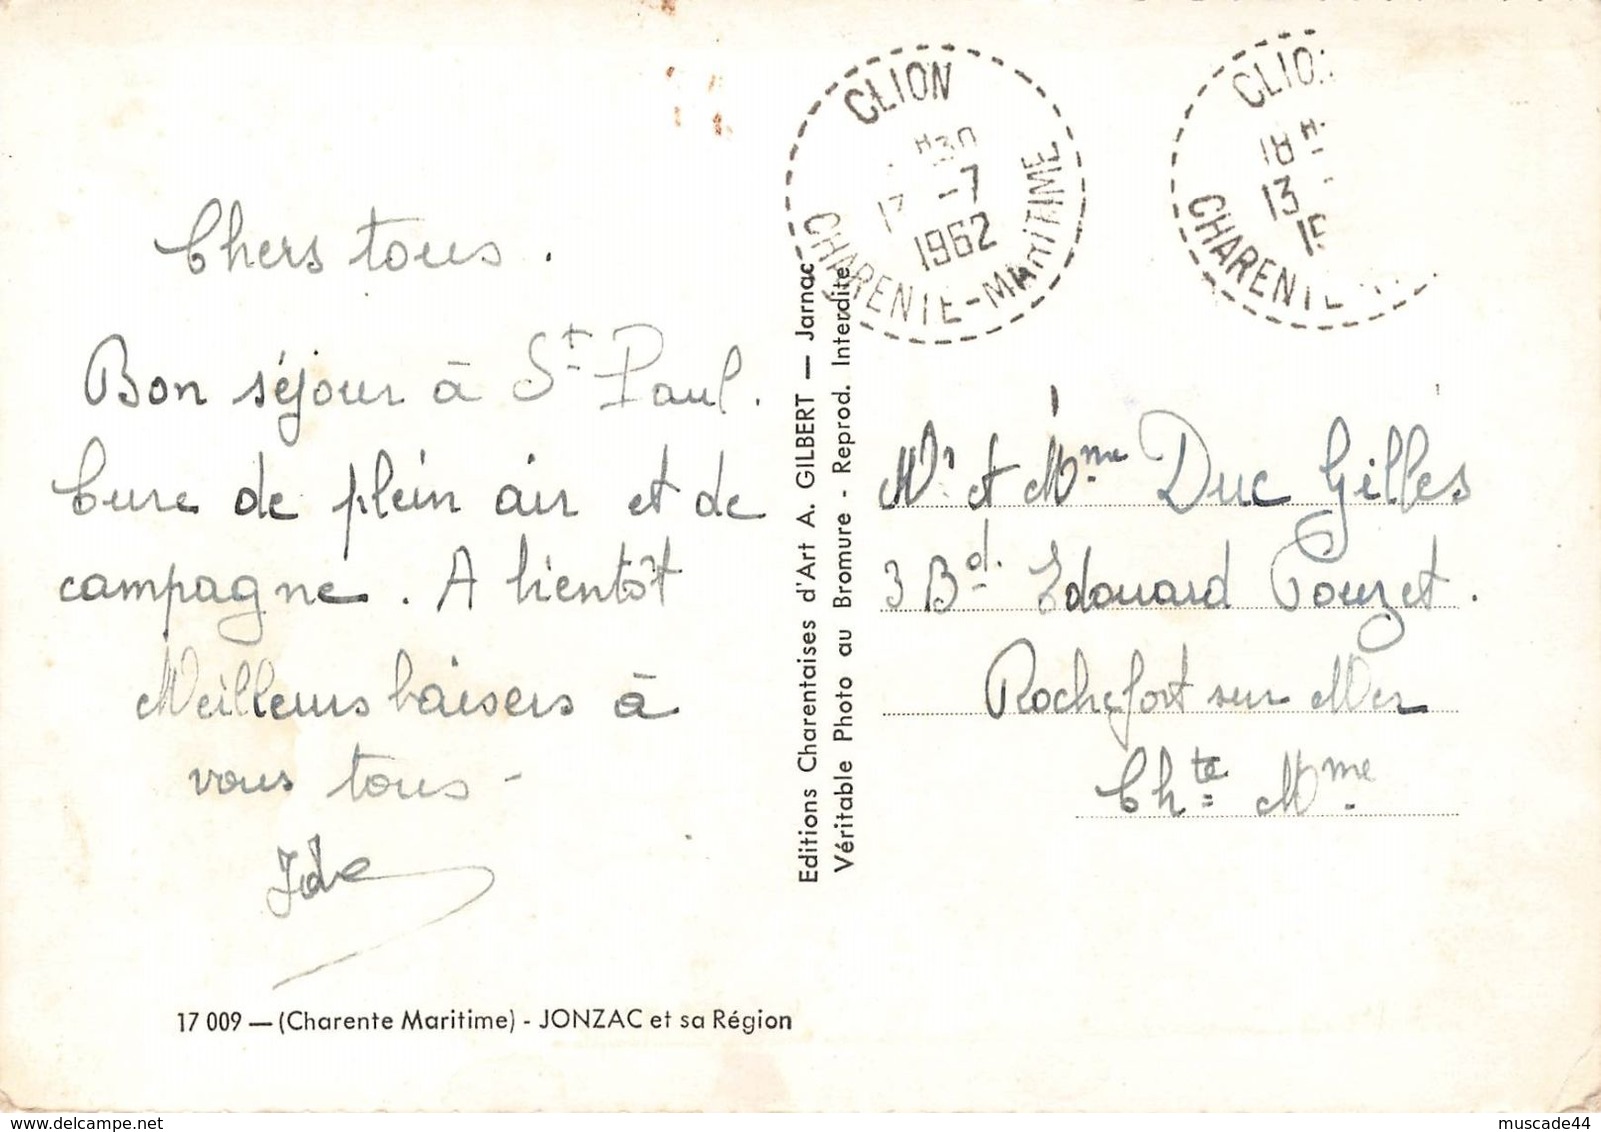 CLION
H30
13 -7
1962
CHARENTE-MARITIME
CLIO
18H
13
CHARENTE
Chers tous.
Bon séjour à St Paul.
Cure de plein air et de
campagne. A bientôt
Meilleurs baisers à
vous tous -
Mr et Mme Duc Gilles
3 Bd. Edouard Pouzet.
Rochefort sur Mer
Chte Mme
Editions Charentaises d'Art A. GILBERT — Jarnac
Véritable Photo au Bromure - Reprod. Interdite
17 009 — (Charente Maritime) - JONZAC et sa Région
muscade44